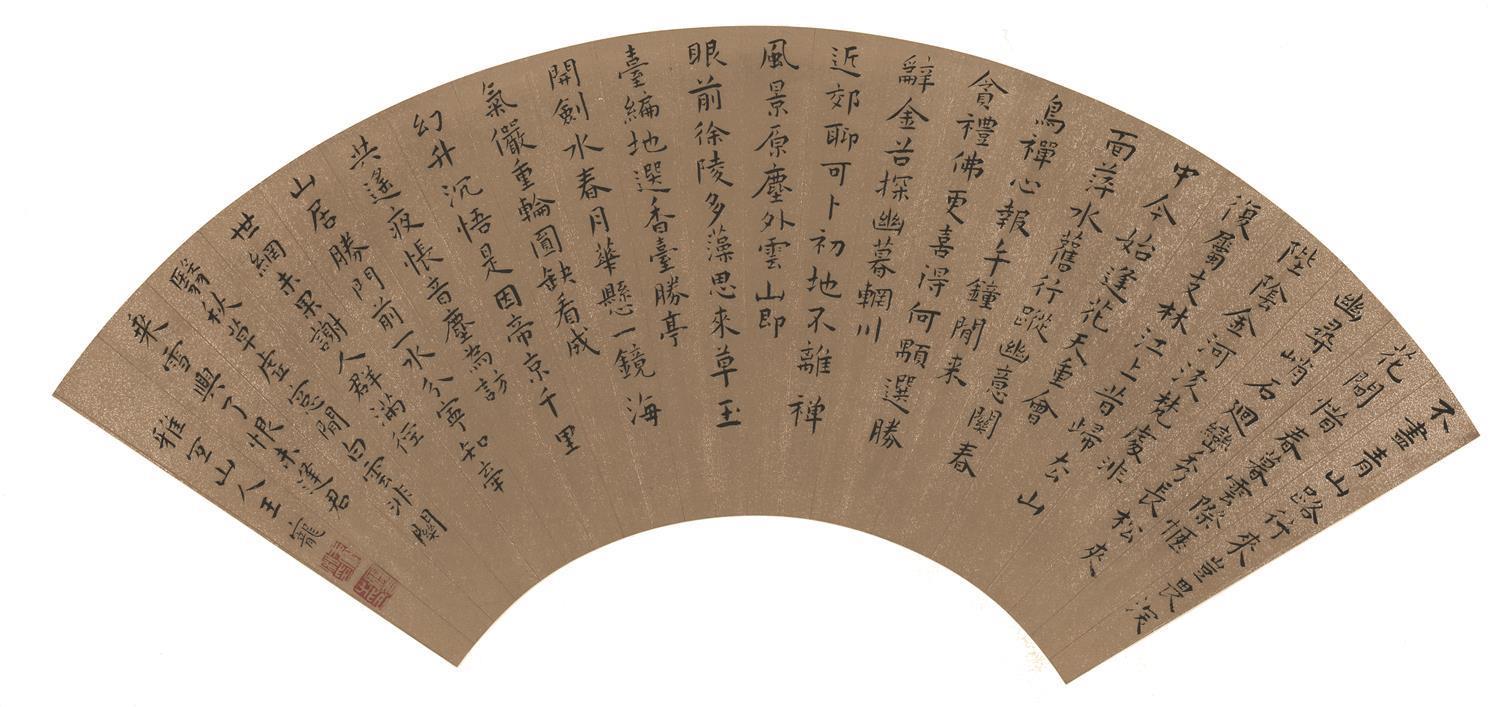 不盡青山路行來豈畏深
花間惜春暮雲際愜
幽尋峭石迴巒秀長松夾
陛陰金河梵處非
復屬支林江上昔歸去山
中今始逢花天重會
面萍水舊行蹤幽意關春
鳥禪心報午鐘閒來
貪禮佛更喜得何顒選勝
辭金谷探幽慕輞川
近郊聊可卜初地不離禪
風景原塵外雲山即
眼前徐陵多藻思來草玉
臺編地選香臺勝亭
開劍水春月華懸一鏡海
氣儼重輪圓缺看成
幻升沉悟是因帝京千里
共遙夜悵音塵為訪
山居勝門前一水分寧知牽
世網未果謝人群滿徑
翳秋草虛窓閒白雲非關
乘雪興了恨未逢君
雅宜山人王寵